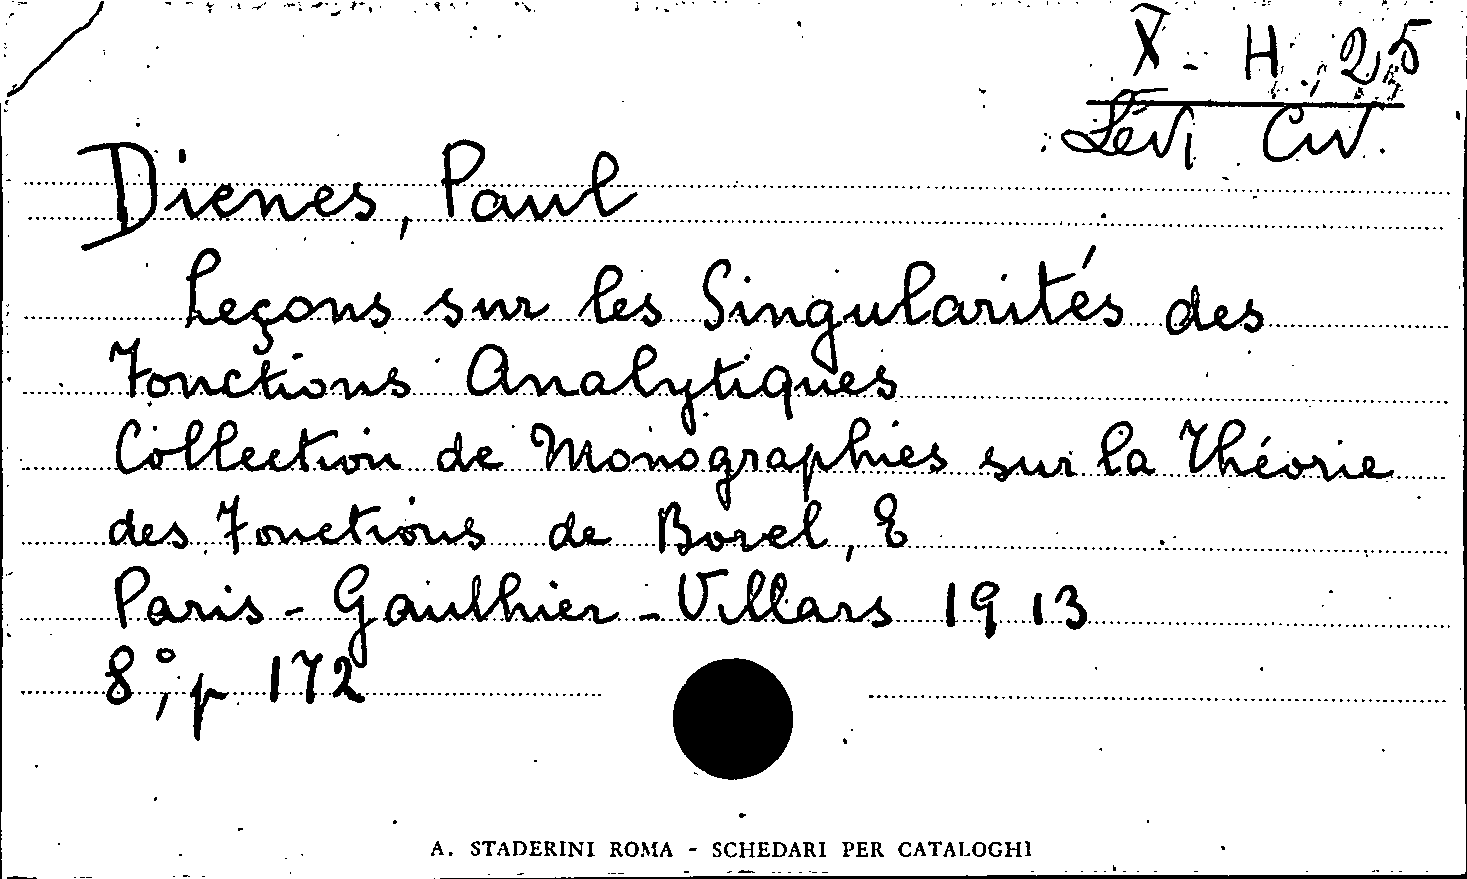 X - H, 25
Levi Civ.
Dienes, Paul
Leçons sur les Singularités des
Fonctions Analytiques
Collection de Monographies sur la Théorie
des Fonctions de Borel, E
Paris - Gauthier - Villars 1913
8°, p 172
A. STADERINI ROMA - SCHEDARI PER CATALOGHI